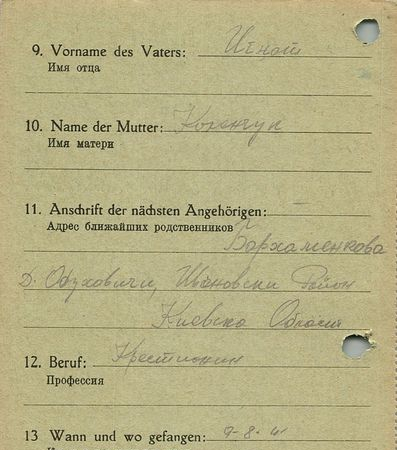 9. Vorname des Vaters: Игнат
Имя отца
10. Name der Mutter:
Имя матери
11. Anschrift der nächsten Angehörigen:
Адрес ближайших родственников
Д. Обуховичи, Ивановски Район
Киевска Област
12. Beruf: Крестианин
Профессия
13 Wann und wo gefangen: 9-8-41